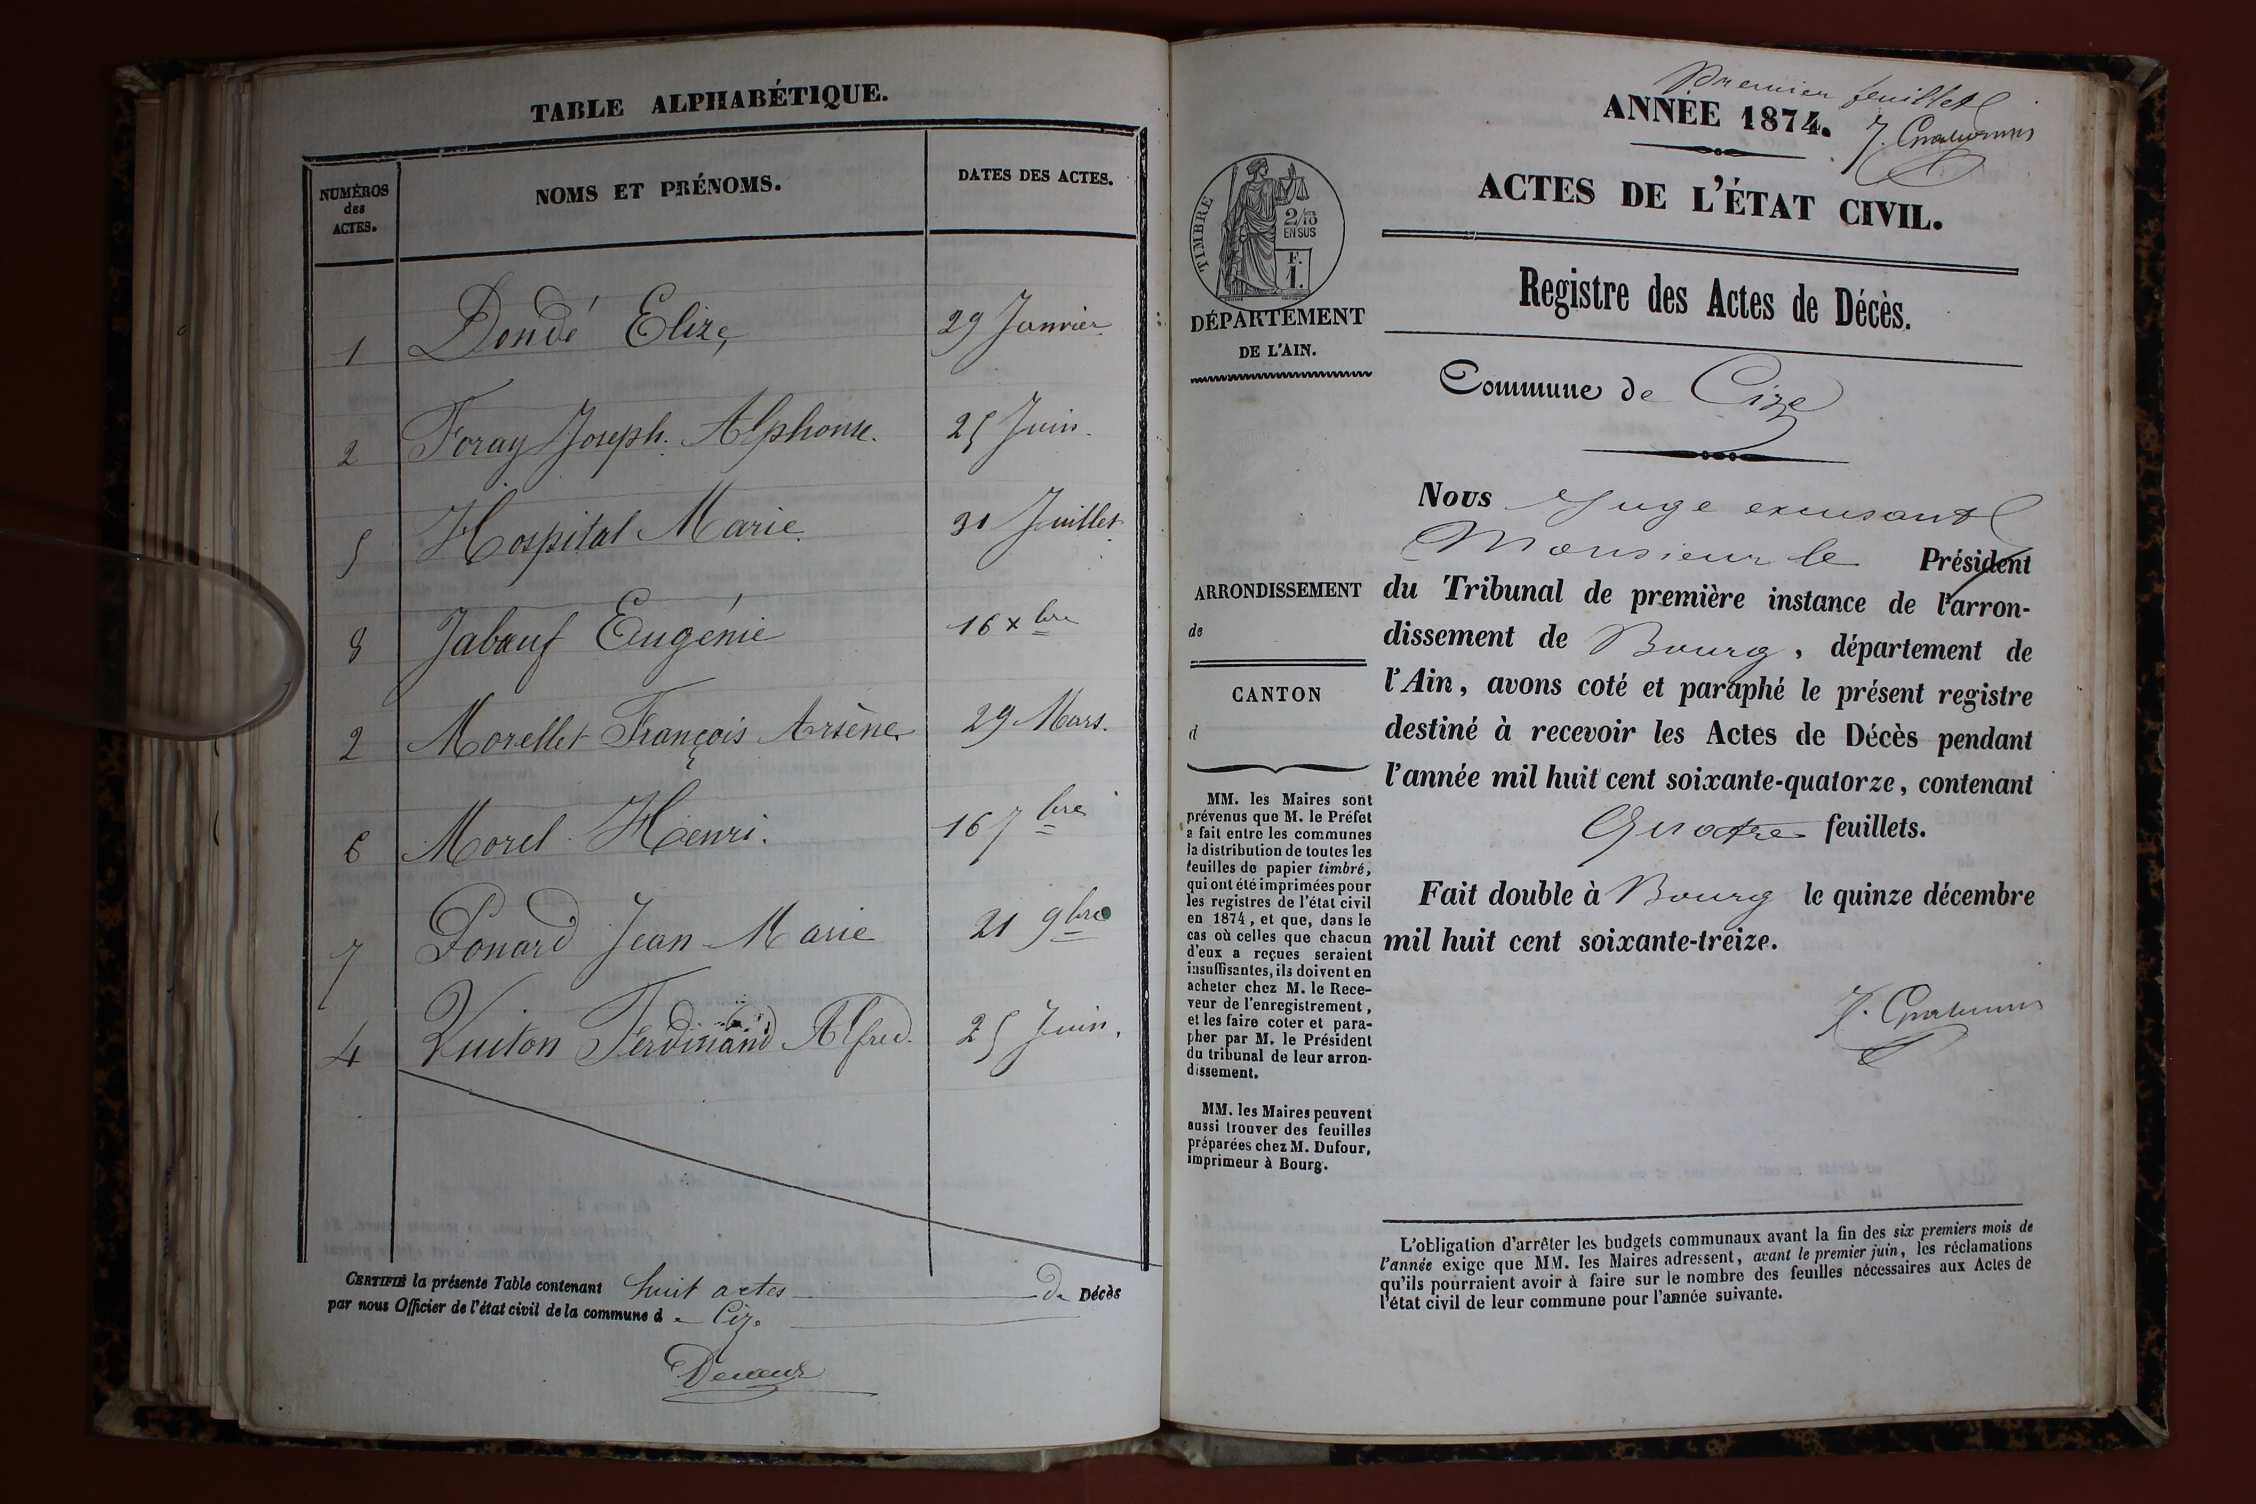 TABLE ALPHABÉTIQUE.
NUMÉROS
des
ACTES.
NOMS ET PRÉNOMS.
DATES DES ACTES.
1 Dondé Elize 29 Janvier
2 Foray Joseph Alphonse. 25 Juin
5 Hospital Marie 31 Juillet
8 Jabœuf Eugénie 16 xbre
2 Morellet François Arsène 29 Mars.
6 Morel Henri. 16 7bre
7 Ponard Jean Marie 21 9bre
4 Vuiton Ferdinand Alfred. 25 Juin.
CERTIFIÉ la présente Table contenant huit actes de Décès
par nous Officier de l'état civil de la commune de Cize
Premier feuillet
ANNÉE 1874.
ACTES DE L'ÉTAT CIVIL.
TIMBRE
2/10
EN SUS
F.
1.
DÉPARTEMENT
DE L'AIN.
ARRONDISSEMENT
de
CANTON
d
MM. les Maires sont
prévenus que M. le Préfet
a fait entre les communes
la distribution de toutes les
feuilles de papier timbré,
qui ont été imprimées pour
les registres de l'état civil
en 1874, et que, dans le
cas où celles que chacun
d'eux a reçues seraient
insuffisantes, ils doivent en
acheter chez M. le Rece-
veur de l'enregistrement,
et les faire coter et para-
pher par M. le Président
du tribunal de leur arron-
dissement.
MM. les Maires peuvent
aussi trouver des feuilles
préparées chez M. Dufour,
imprimeur à Bourg.
Registre des Actes de Décès.
Commune de Cize
Nous Juge excusant
Monsieur le Président
du Tribunal de première instance de l'arron-
dissement de Bourg, département de
l'Ain, avons coté et paraphé le présent registre
destiné à recevoir les Actes de Décès pendant
l'année mil huit cent soixante-quatorze, contenant
Quatre feuillets.
Fait double à Bourg le quinze décembre
mil huit cent soixante-treize.
L'obligation d'arrêter les budgets communaux avant la fin des six premiers mois de
l'année exige que MM. les Maires adressent, avant le premier juin, les réclamations
qu'ils pourraient avoir à faire sur le nombre des feuilles nécessaires aux Actes de
l'état civil de leur commune pour l'année suivante.